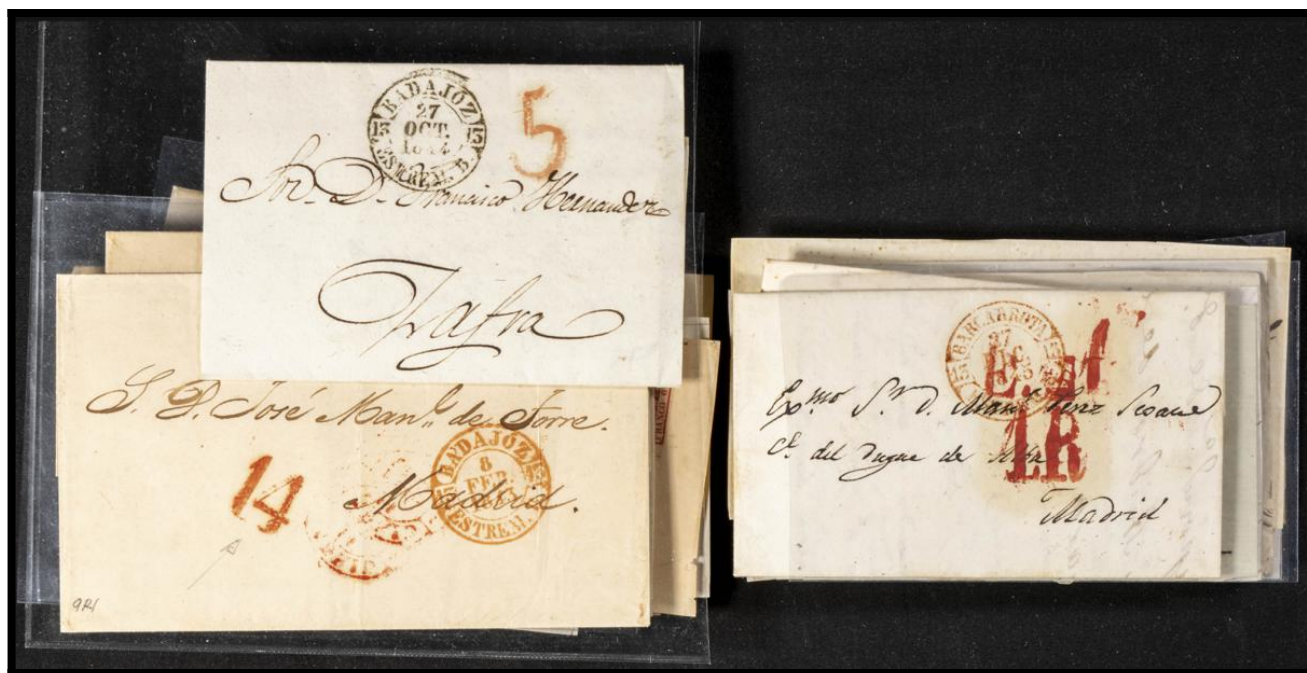 BADAJÓZ
27
OCT.
15 15
ESTREM. B.
5
Sor. D. Francisco Hernandez
Zafra
S. D. José Man.l de Torre.
14
Madrid.
BADAJÓZ
8
FEB
ESTREM.
9R1
BARCARROTA
27
1R
Exmo Sr. D. Man.l
C. del Duque de Alba
Madrid